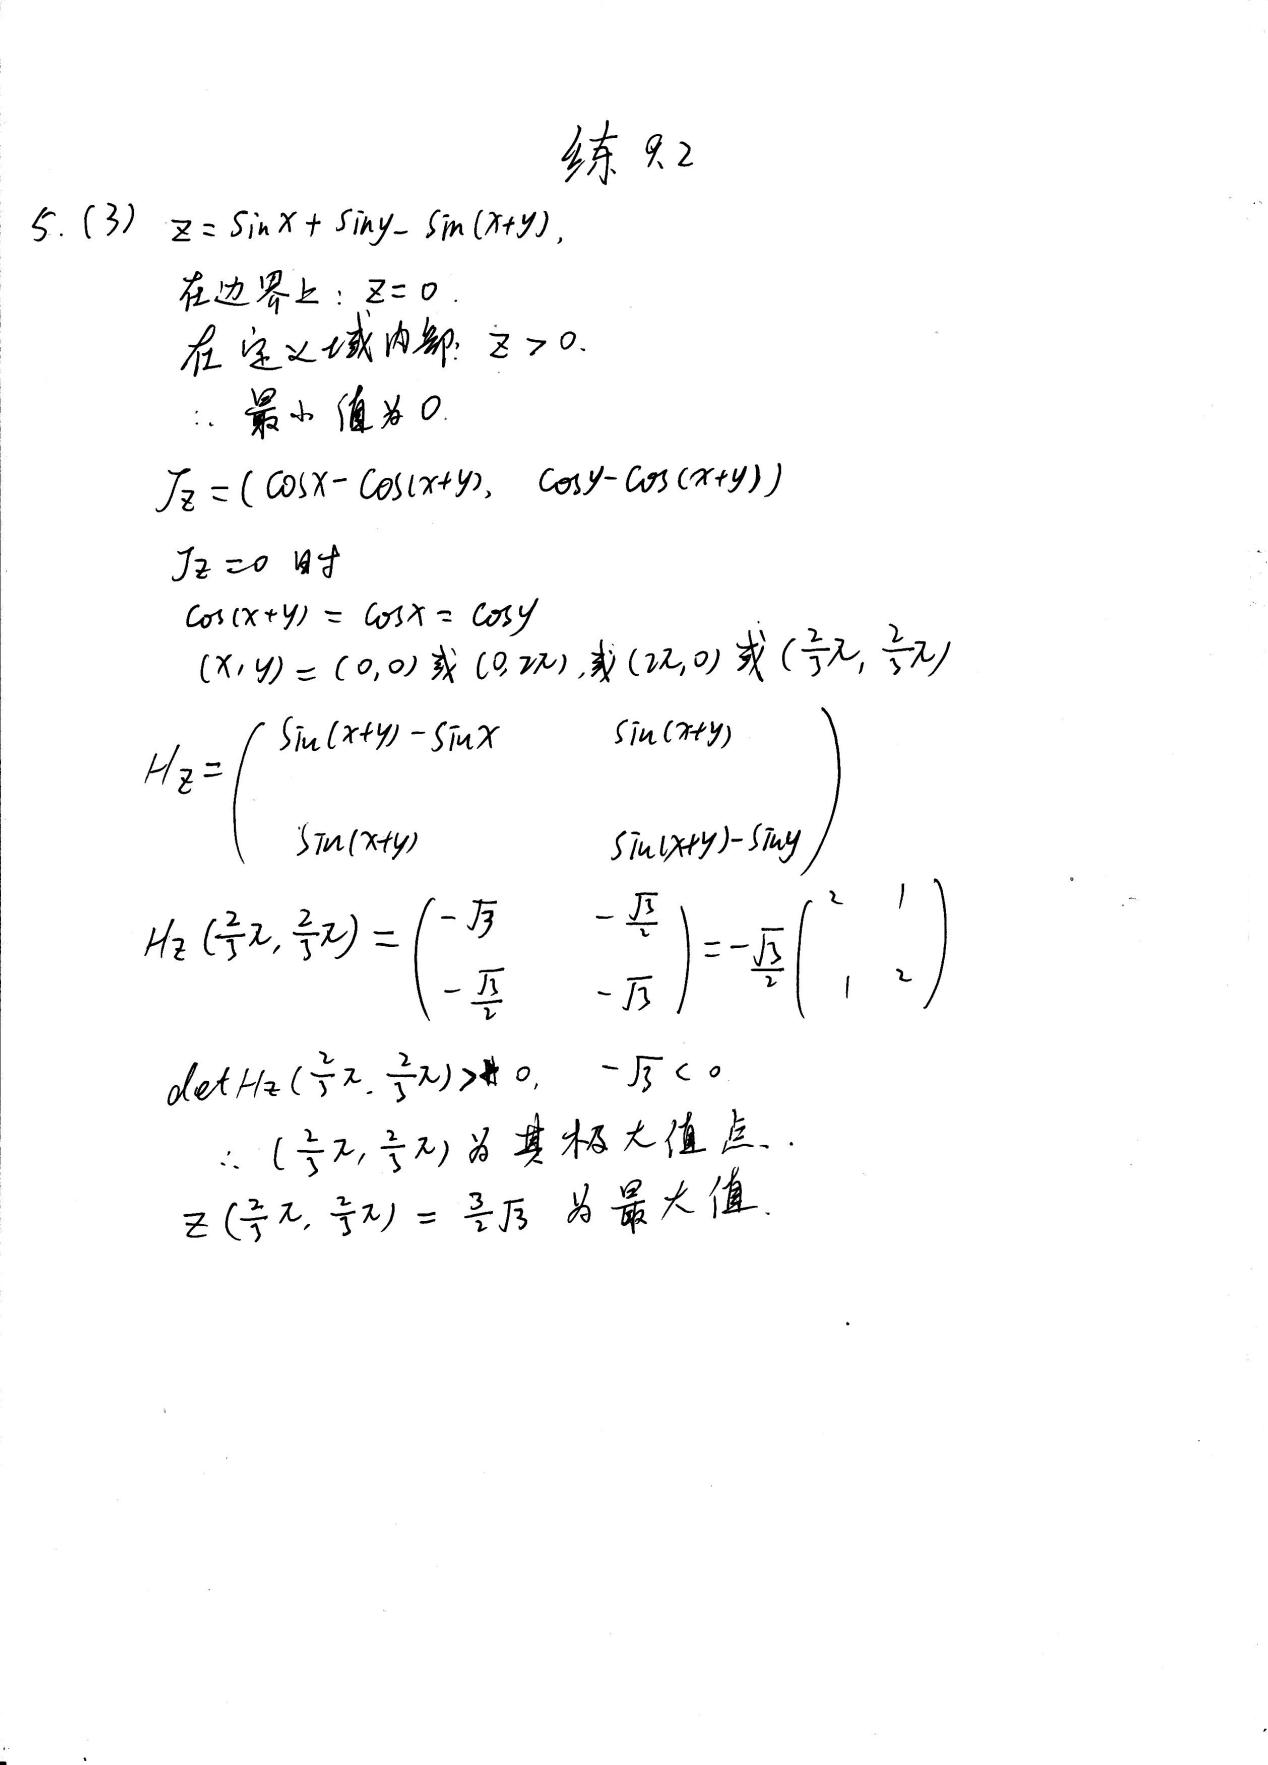 练 9.2
5. (3) z = sinx + siny - sin(x+y),
在边界上: z=0.
在定义域内部: z>0.
∴ 最小值为0.
Jz = (cosx - cos(x+y), cosy - cos(x+y))
Jz = 0 时
cos(x+y) = cosx = cosy
(x,y) = (0,0) 或 (0,2π), 或 (2π,0) 或 (2/3 π, 2/3 π)
Hz = ( sin(x+y) - sinx   sin(x+y)
sin(x+y)   sin(x+y) - siny )
Hz (2/3 π, 2/3 π) = ( -√3   -√3/2 ; -√3/2   -√3 ) = -√3/2 ( 2   1 ; 1   2 )
det Hz (2/3 π, 2/3 π) > 0,   -√3 < 0
∴ (2/3 π, 2/3 π) 为其极大值点.
z (2/3 π, 2/3 π) = 3/2 √3 为最大值.